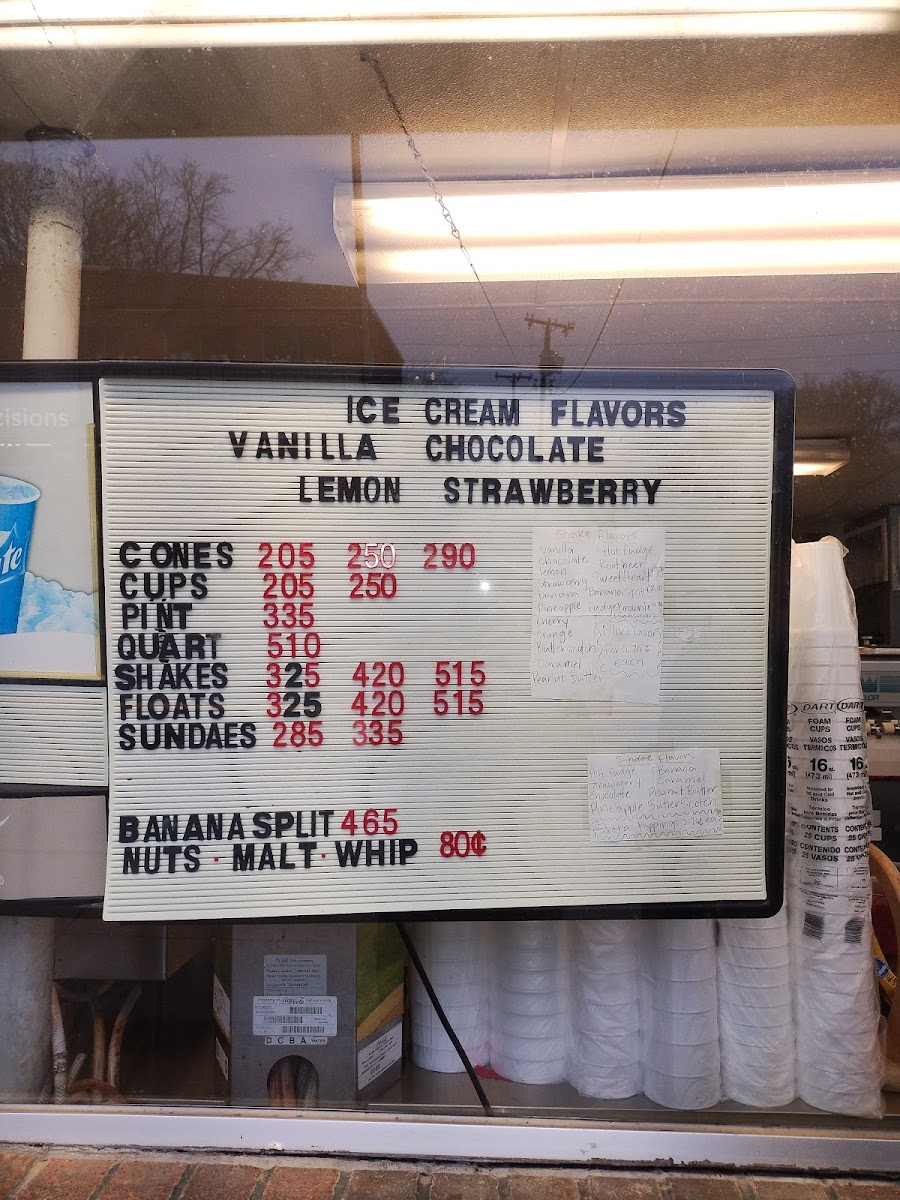 cisions
ICE CREAM FLAVORS
VANILLA CHOCOLATE
LEMON STRAWBERRY
CONES 205 250 290
CUPS 205 250
PINT 335
QUART 510
SHAKES 325 420 515
FLOATS 325 420 515
SUNDAES 285 335
BANANA SPLIT 465
NUTS · MALT · WHIP 80¢
Shake Flavors
Vanilla Hot Fudge
chocolate Root beer
lemon Sweetheart
Strawberry Banana Split
banana Fudge Brownie
Pineapple
Cherry
Orange Mix Flavors
Butterscotch
Caramel each
Peanut Butter
Sundae Flavors
Hot Fudge Banana
Strawberry Caramel
chocolate Peanut Butter
Pineapple Butterscotch
Extra topping
DART DART
FOAM FOAM
CUPS CUPS
VASOS VASOS
TERMICOS TERMICO
16 oz. 16
(473 ml) (473 m
CONTENTS CONTE
25 CUPS 25 C
CONTENIDO CONTE
25 VASOS 25
D C B A WATER